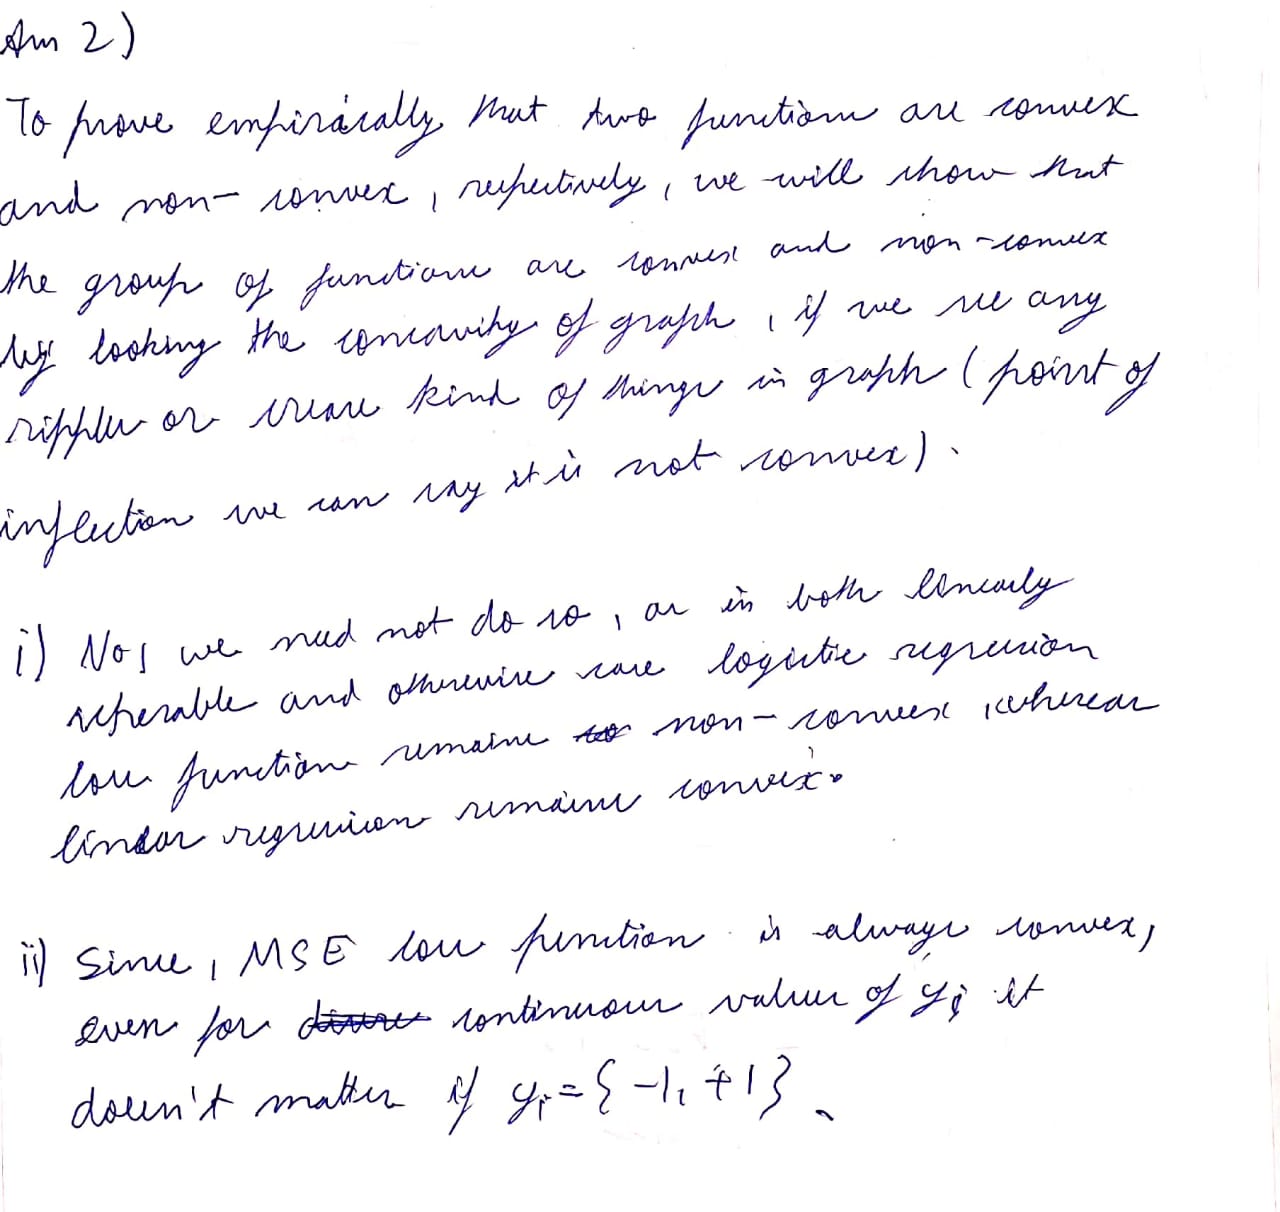 Ans 2)
To prove empirically that two functions are convex
and non-convex, respectively, we will show that
the group of functions are convex and non-convex
by looking the concavity of graph, if we see any
ripples or crease kind of things in graph (point of
inflection we can say it is not convex).
i) No, we need not do so, as in both linearly
seperable and otherwise case logistic regression
loss function remains non-convex, whereas
linear regression remains convex.
ii) Since, MSE loss function is always convex,
even for continuous values of yi it
doesn't matter if yi = {-1, +1}.